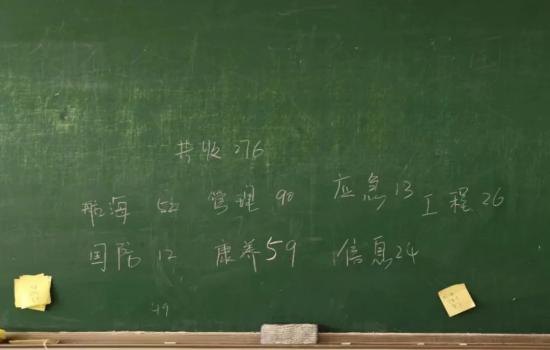 共收 276
航海 52 管理 90 应急 13 工程 26
国防 12 康养 59 信息 24
49